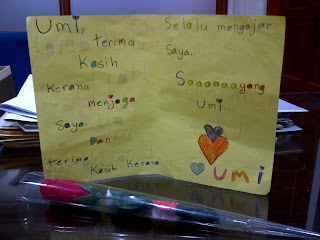 Umi,
terima
Kasih
Kerana
menjaga
Saya.
Dan
terima
Kasih Kerana
Selalu mengajar
Saya.
Saaaaaayang
Umi
Umi